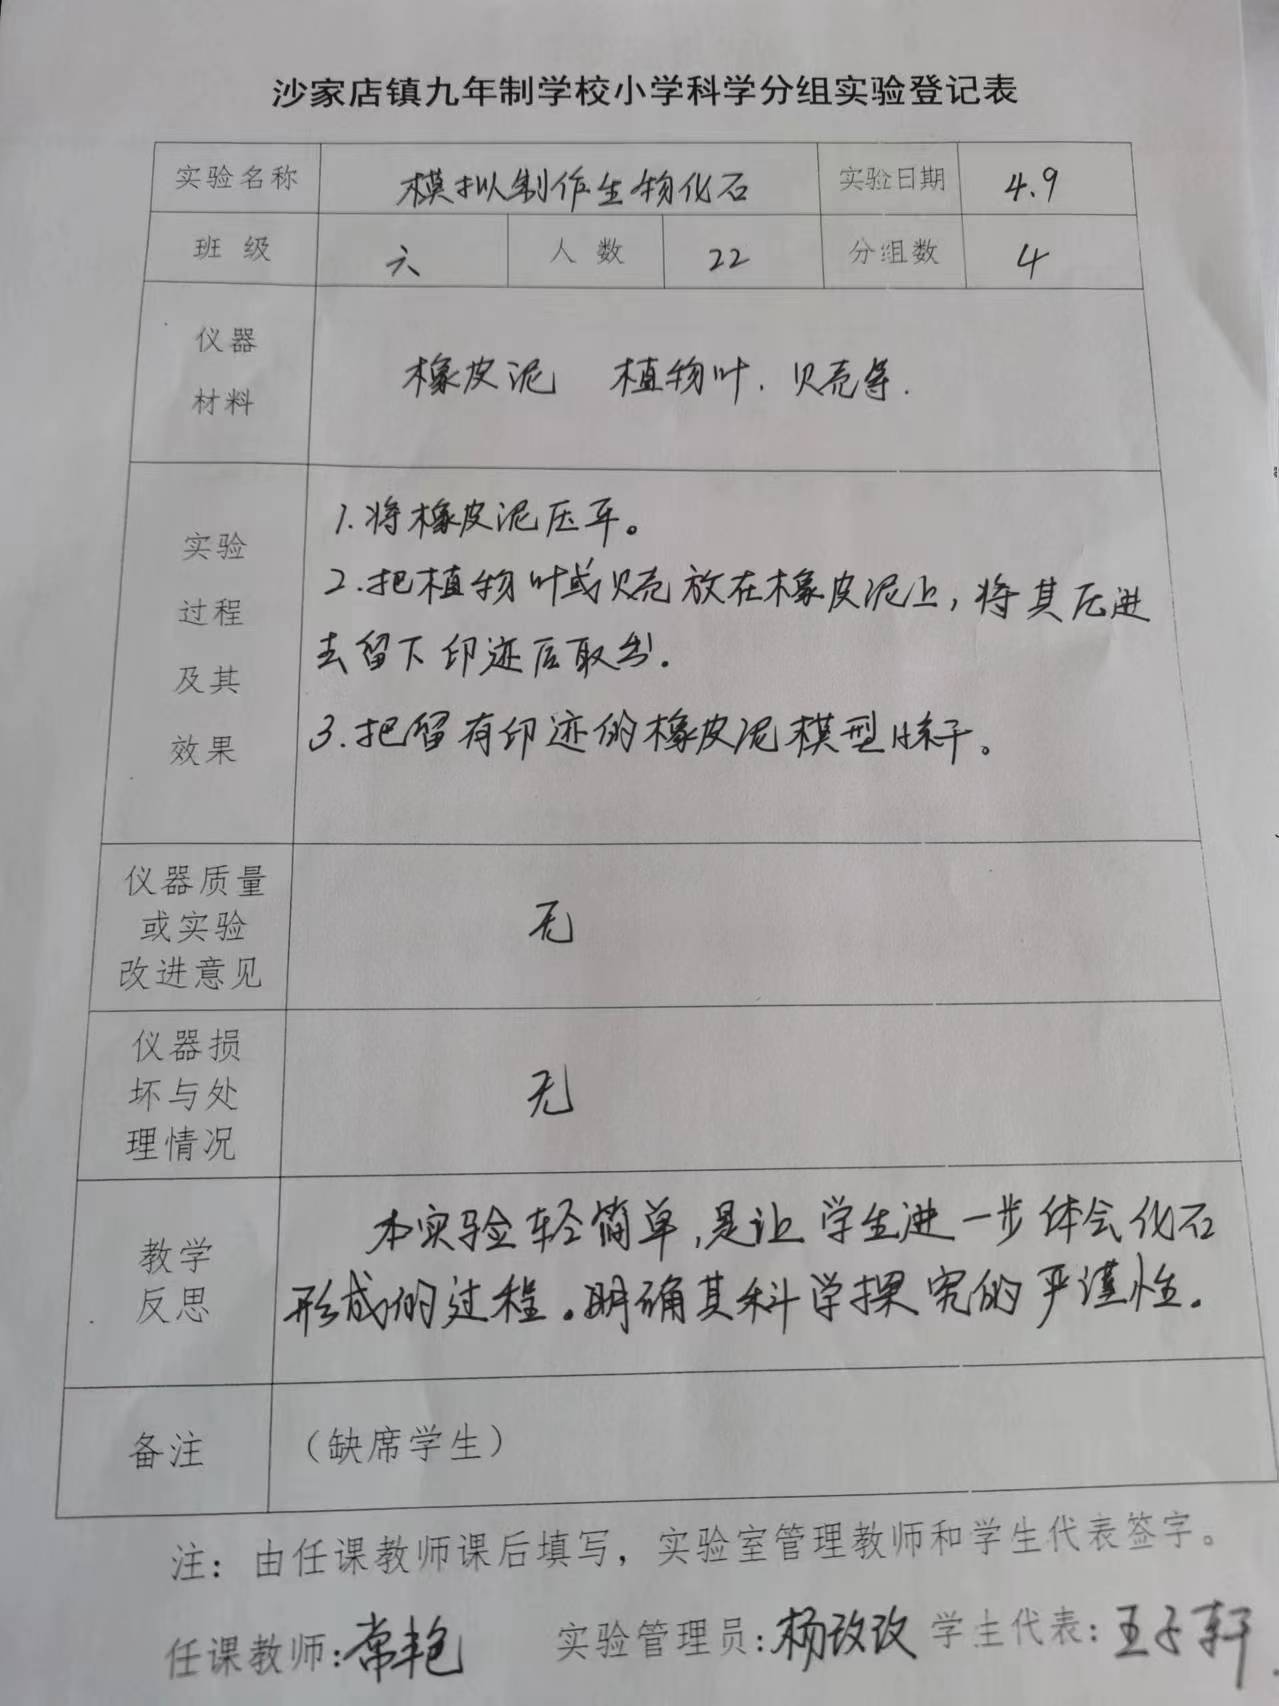 沙家店镇九年制学校小学科学分组实验登记表
实验名称 模拟制作生物化石 实验日期 4.9
班 级 六 人 数 22 分组数 4
仪器
材料
橡皮泥 植物叶、贝壳等.
实验
过程
及其
效果
1.将橡皮泥压平。
2.把植物叶或贝壳放在橡皮泥上,将其压进
去留下印迹后取出.
3.把留有印迹的橡皮泥模型晾干。
仪器质量
或实验
改进意见
无
仪器损
坏与处
理情况
无
教学
反思
本实验轻简单,是让学生进一步体会化石
形成的过程。明确其科学探究的严谨性.
备注 (缺席学生)
注：由任课教师课后填写，实验室管理教师和学生代表签字。
任课教师:常艳 实验管理员:杨改改 学生代表:王子轩